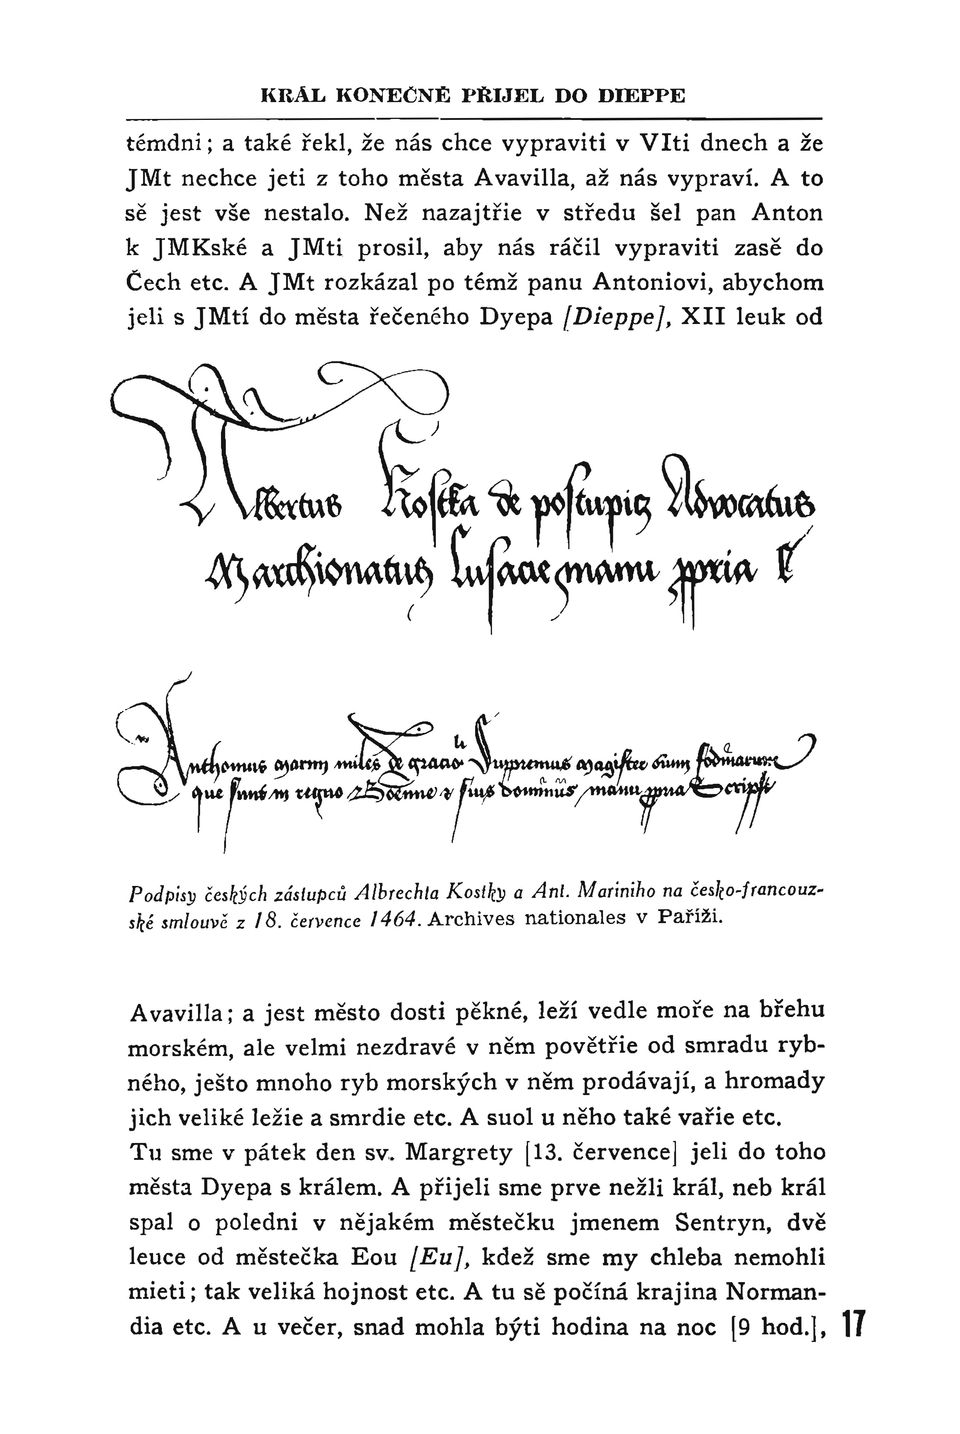 KRÁL KONEČNĚ PŘIJEL DO DIEPPE
témdni; a také řekl, že nás chce vypraviti v VIti dnech a že
JMt nechce jeti z toho města Avavilla, až nás vypraví. A to
sě jest vše nestalo. Než nazajtřie v středu šel pan Anton
k JMKské a JMti prosil, aby nás ráčil vypraviti zasě do
Čech etc. A JMt rozkázal po témž panu Antoniovi, abychom
jeli s JMtí do města řečeného Dyepa [Dieppe], XII leuk od
Albertus Kostka de postupicz Advocatus
Marchionatus Lusacie manu ppria
Anthonius marini miles de gracio
que sunt in regno
Podpisy českých zástupců Albrechta Kostky a Ant. Mariniho na česko-francouz-
ské smlouvě z 18. července 1464. Archives nationales v Paříži.
Avavilla; a jest město dosti pěkné, leží vedle moře na břehu
morském, ale velmi nezdravé v něm povětřie od smradu ryb-
ného, ješto mnoho ryb morských v něm prodávají, a hromady
jich veliké ležie a smrdie etc. A suol u něho také vařie etc.
Tu sme v pátek den sv. Margrety [13. července] jeli do toho
města Dyepa s králem. A přijeli sme prve nežli král, neb král
spal o poledni v nějakém městečku jmenem Sentryn, dvě
leuce od městečka Eou [Eu], kdež sme my chleba nemohli
mieti; tak veliká hojnost etc. A tu sě počíná krajina Norman-
dia etc. A u večer, snad mohla býti hodina na noc [9 hod.],
17